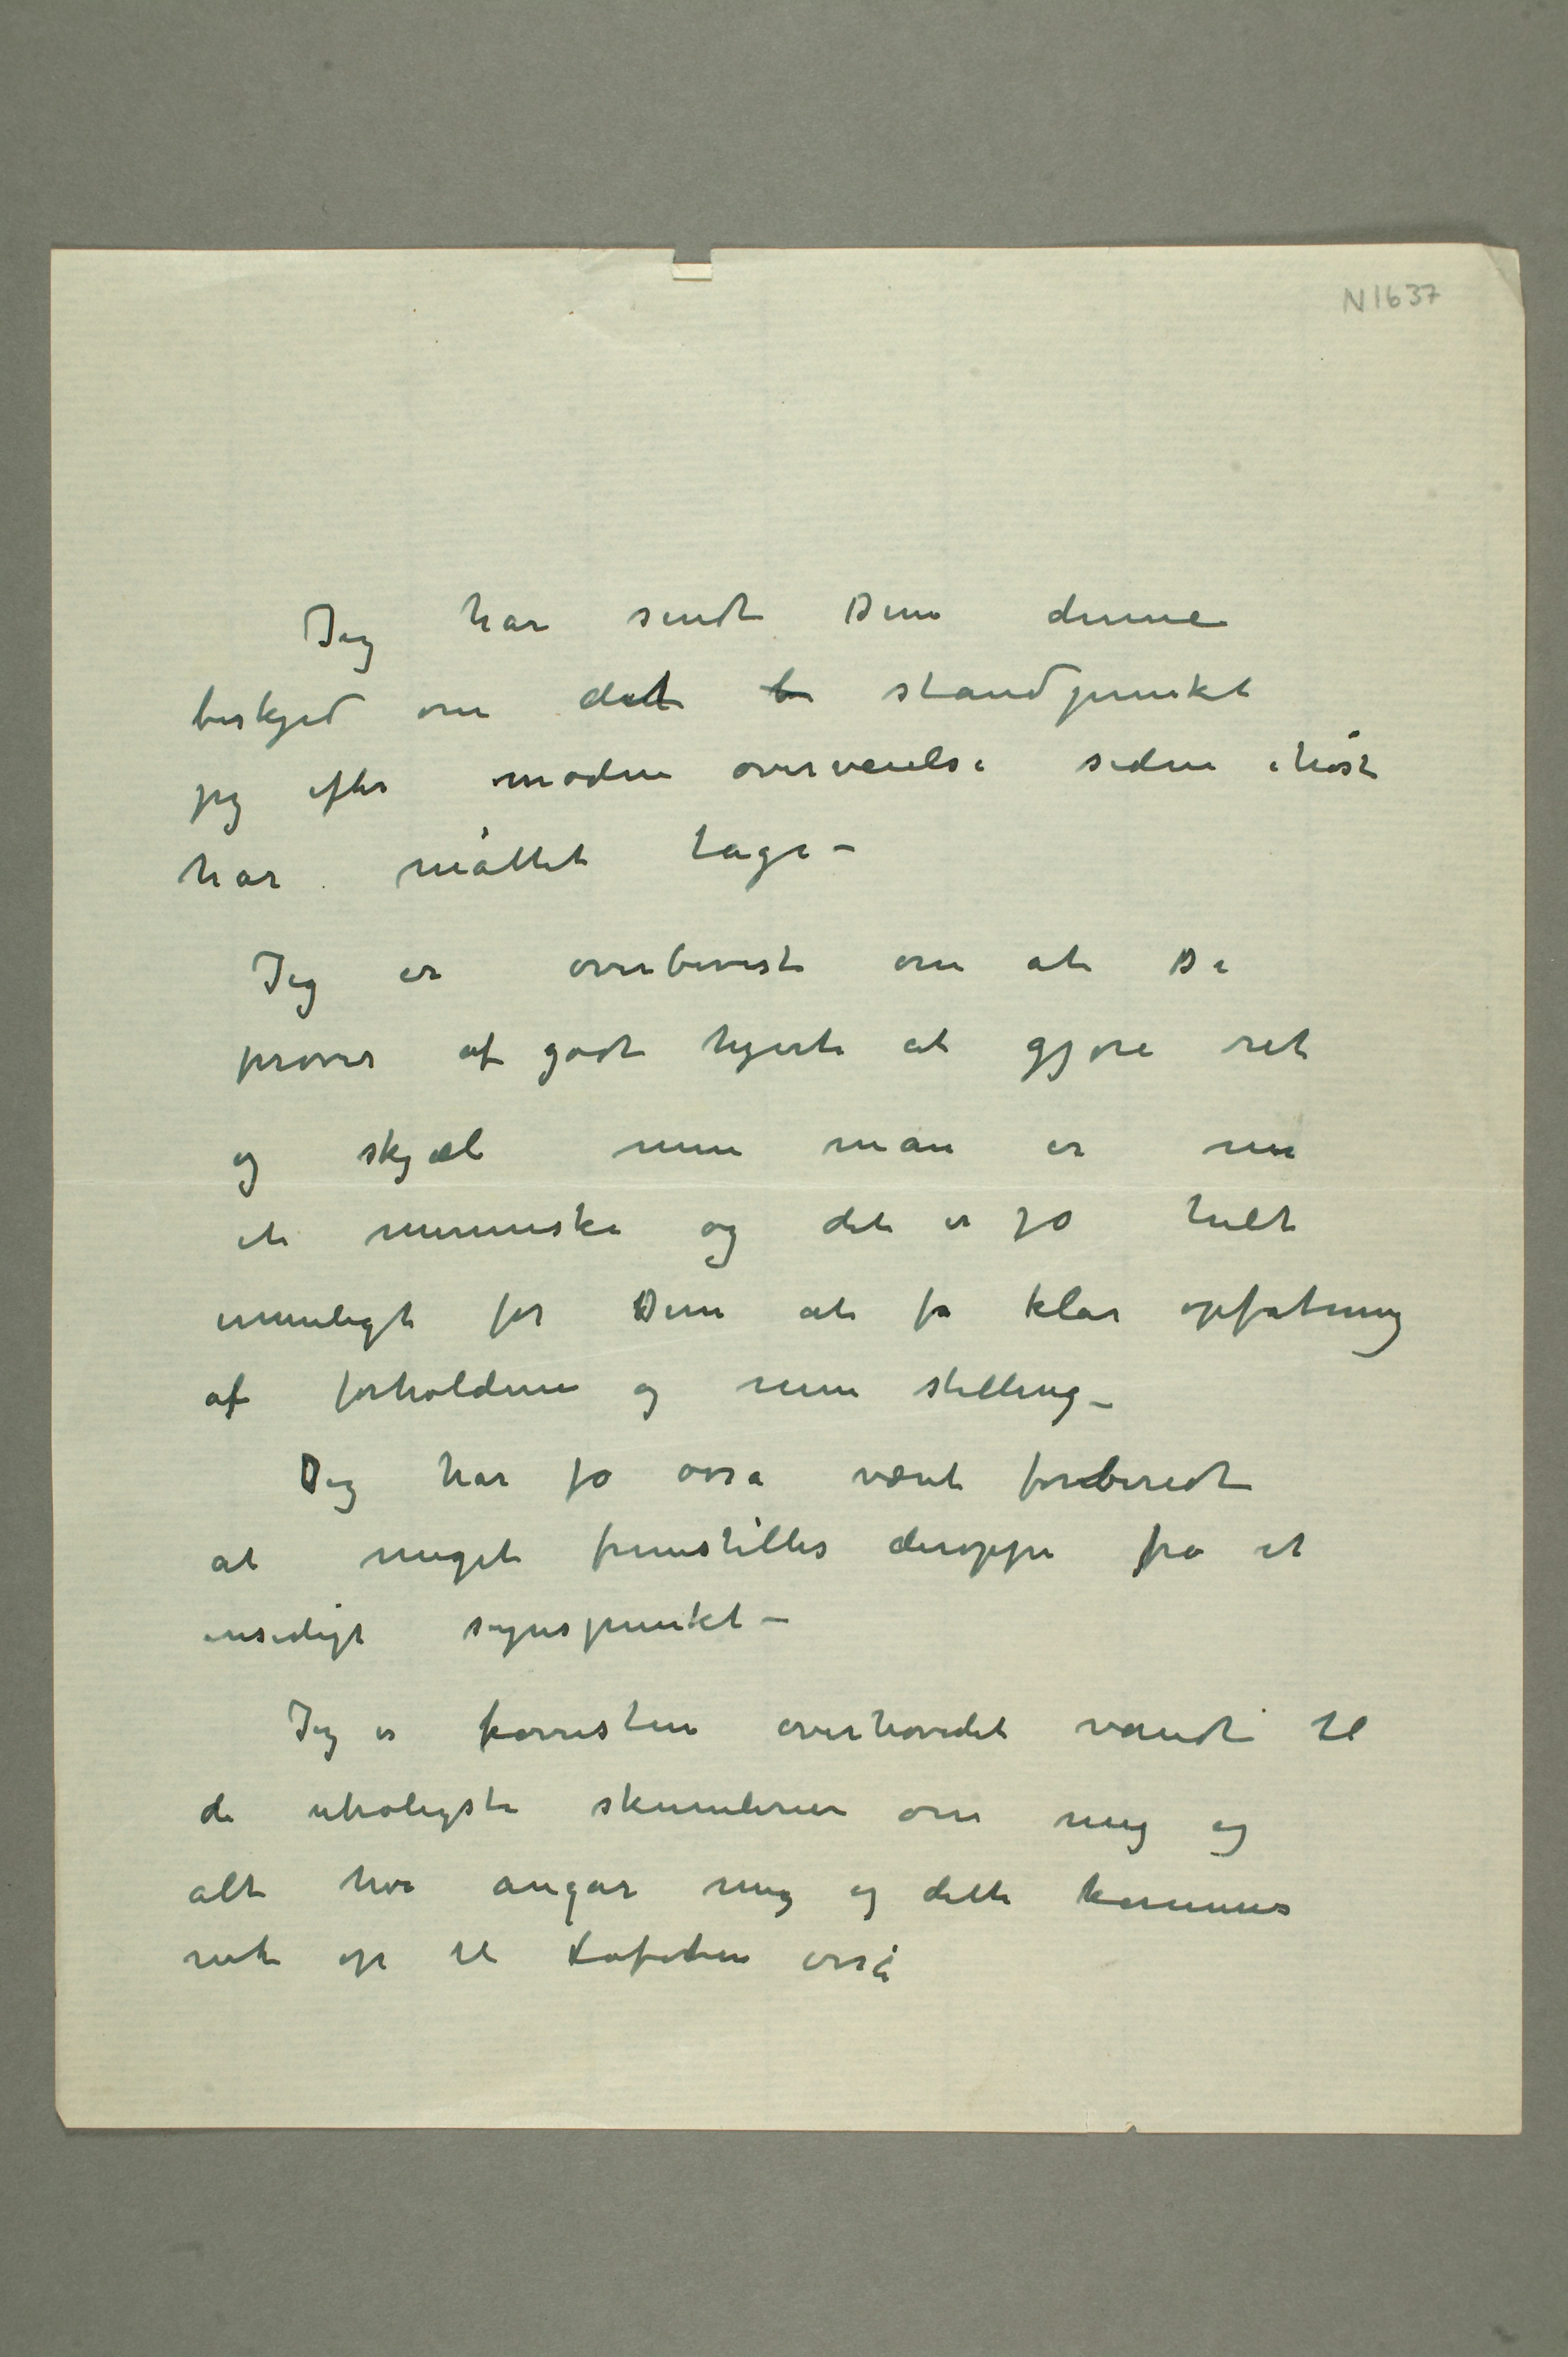 N1637
Jeg har sendt Dem denne
beskjed om det b standpunkt
jeg efter moden overveielse siden ihøst
har måttet tage –
Jeg er overbevist om at De
prøver af godt hjerte at gjøre ret
og skjæl men man er
et menneske og det er jo helt
umuligt for Dem at fa klar opfatning
af forholdene og min stilling –
Jeg har jo ossa været forberedt
at meget fremstilles deroppe fra et
ensidigt synspunkt –
Jeg er forresten overhovedet vandt til
de utroligste skumlerier om mig og
alt hva angår mig og dette kommer
nok op til Lofoten osså